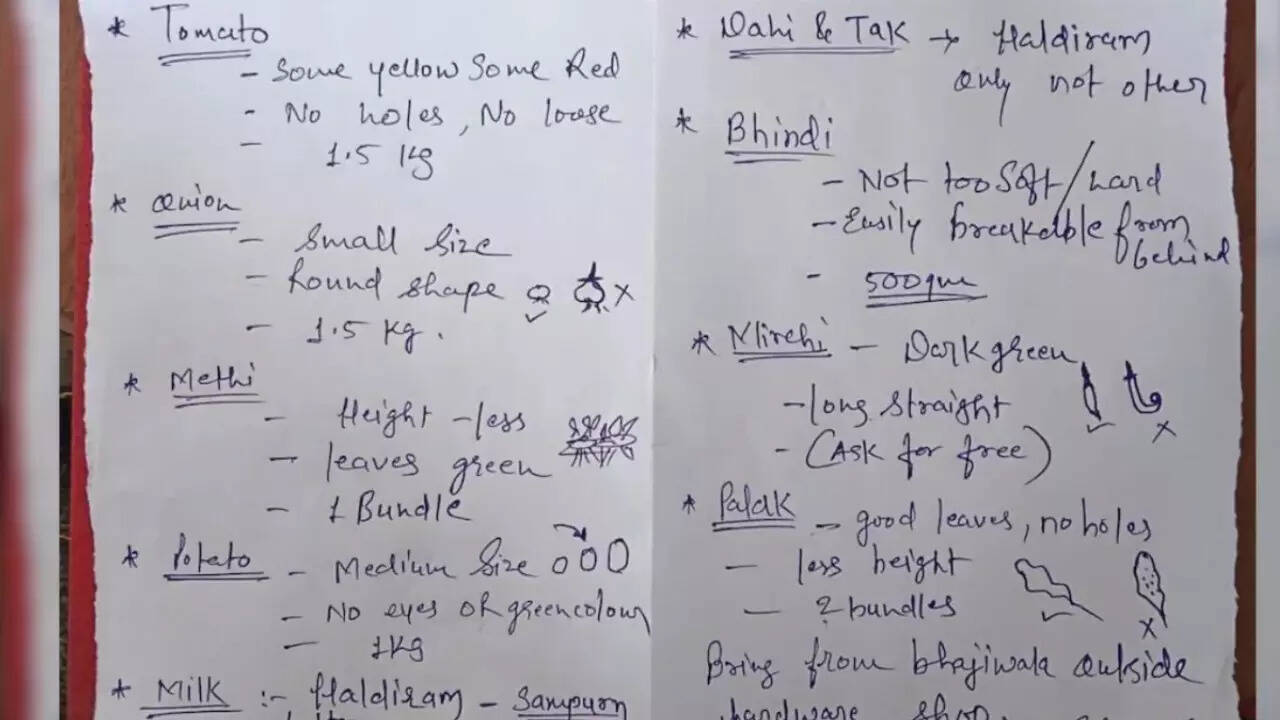 * Tomato
- Some yellow Some Red
- No holes, No loose
- 1.5 Kg
* Onion
- Small Size
- Round shape
- 1.5 Kg.
* Methi
- Height - less
- leaves green
- 1 Bundle
* Potato - Medium Size
- No eyes or green colour
- 1Kg
* Milk :- Haldiram - Sampurn
* Dahi & Tak → Haldiram
only not other
* Bhindi
- Not too Soft/hard
- Easily breakable from
behind
- 500gm
* Mirchi - Dark green
- long straight
- (Ask for free)
* Palak - good leaves, no holes
- less height
- 2 bundles
Bring from bhajiwala outside
hardware shop.